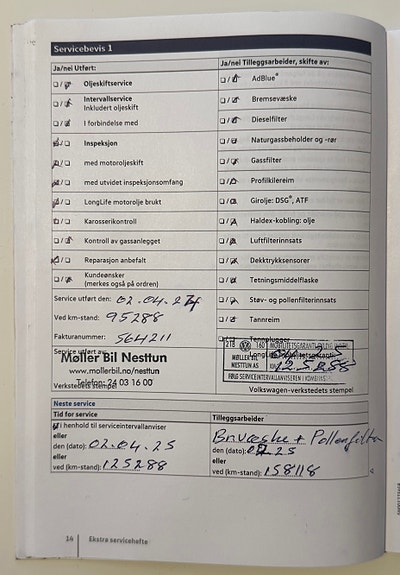 Servicebevis 1
Ja/nei Utført:
Oljeskiftservice
Intervallservice
Inkludert oljeskift
I forbindelse med
Inspeksjon
med motoroljeskift
med utvidet inspeksjonsomfang
LongLife motorolje brukt
Karosserikontroll
Kontroll av gassanlegget
Reparasjon anbefalt
Kundeønsker
(merkes også på ordren)
Service utført den: 02.04.24
Ved km-stand: 95288
Fakturanummer: 564211
Service utført av:
Møller Bil Nesttun
www.mollerbil.no/nesttun
Telefon: 24 03 16 00
Verkstedets stempel
Ja/nei Tilleggsarbeider, skifte av:
AdBlue®
Bremsevæske
Dieselfilter
Naturgassbeholder og -rør
Gassfilter
Profilkilereim
Girolje: DSG®, ATF
Haldex-kobling: olje
Luftfilterinnsats
Dekktrykksensorer
Tetningsmiddelflaske
Støv- og pollenfilterinnsats
Tannreim
Tennplugger
218 160 MOBILITETSGARANTI GYLDIG TIL
MØLLER BIL
NESTTUN AS
125.288
FØLG SERVICEINTERVALLANVISEREN I KOMBIINSTR.
Volkswagen-verkstedets stempel
Neste service
Tid for service
i henhold til serviceintervallanviser
eller
den (dato): 02.04.25
eller
ved (km-stand): 125288
Tilleggsarbeider
Brvæske + Pollenfilter
den (dato): 02.25
eller
ved (km-stand): 158118
14 Ekstra servicehefte